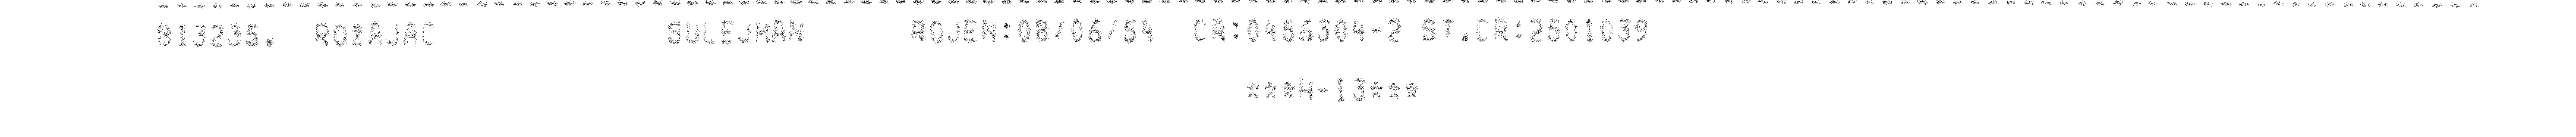 813235. ROŽAJAC SULEJMAN ROJEN:08/06/54 CR:0456304-2 ST.CR:2501039
***H-13***